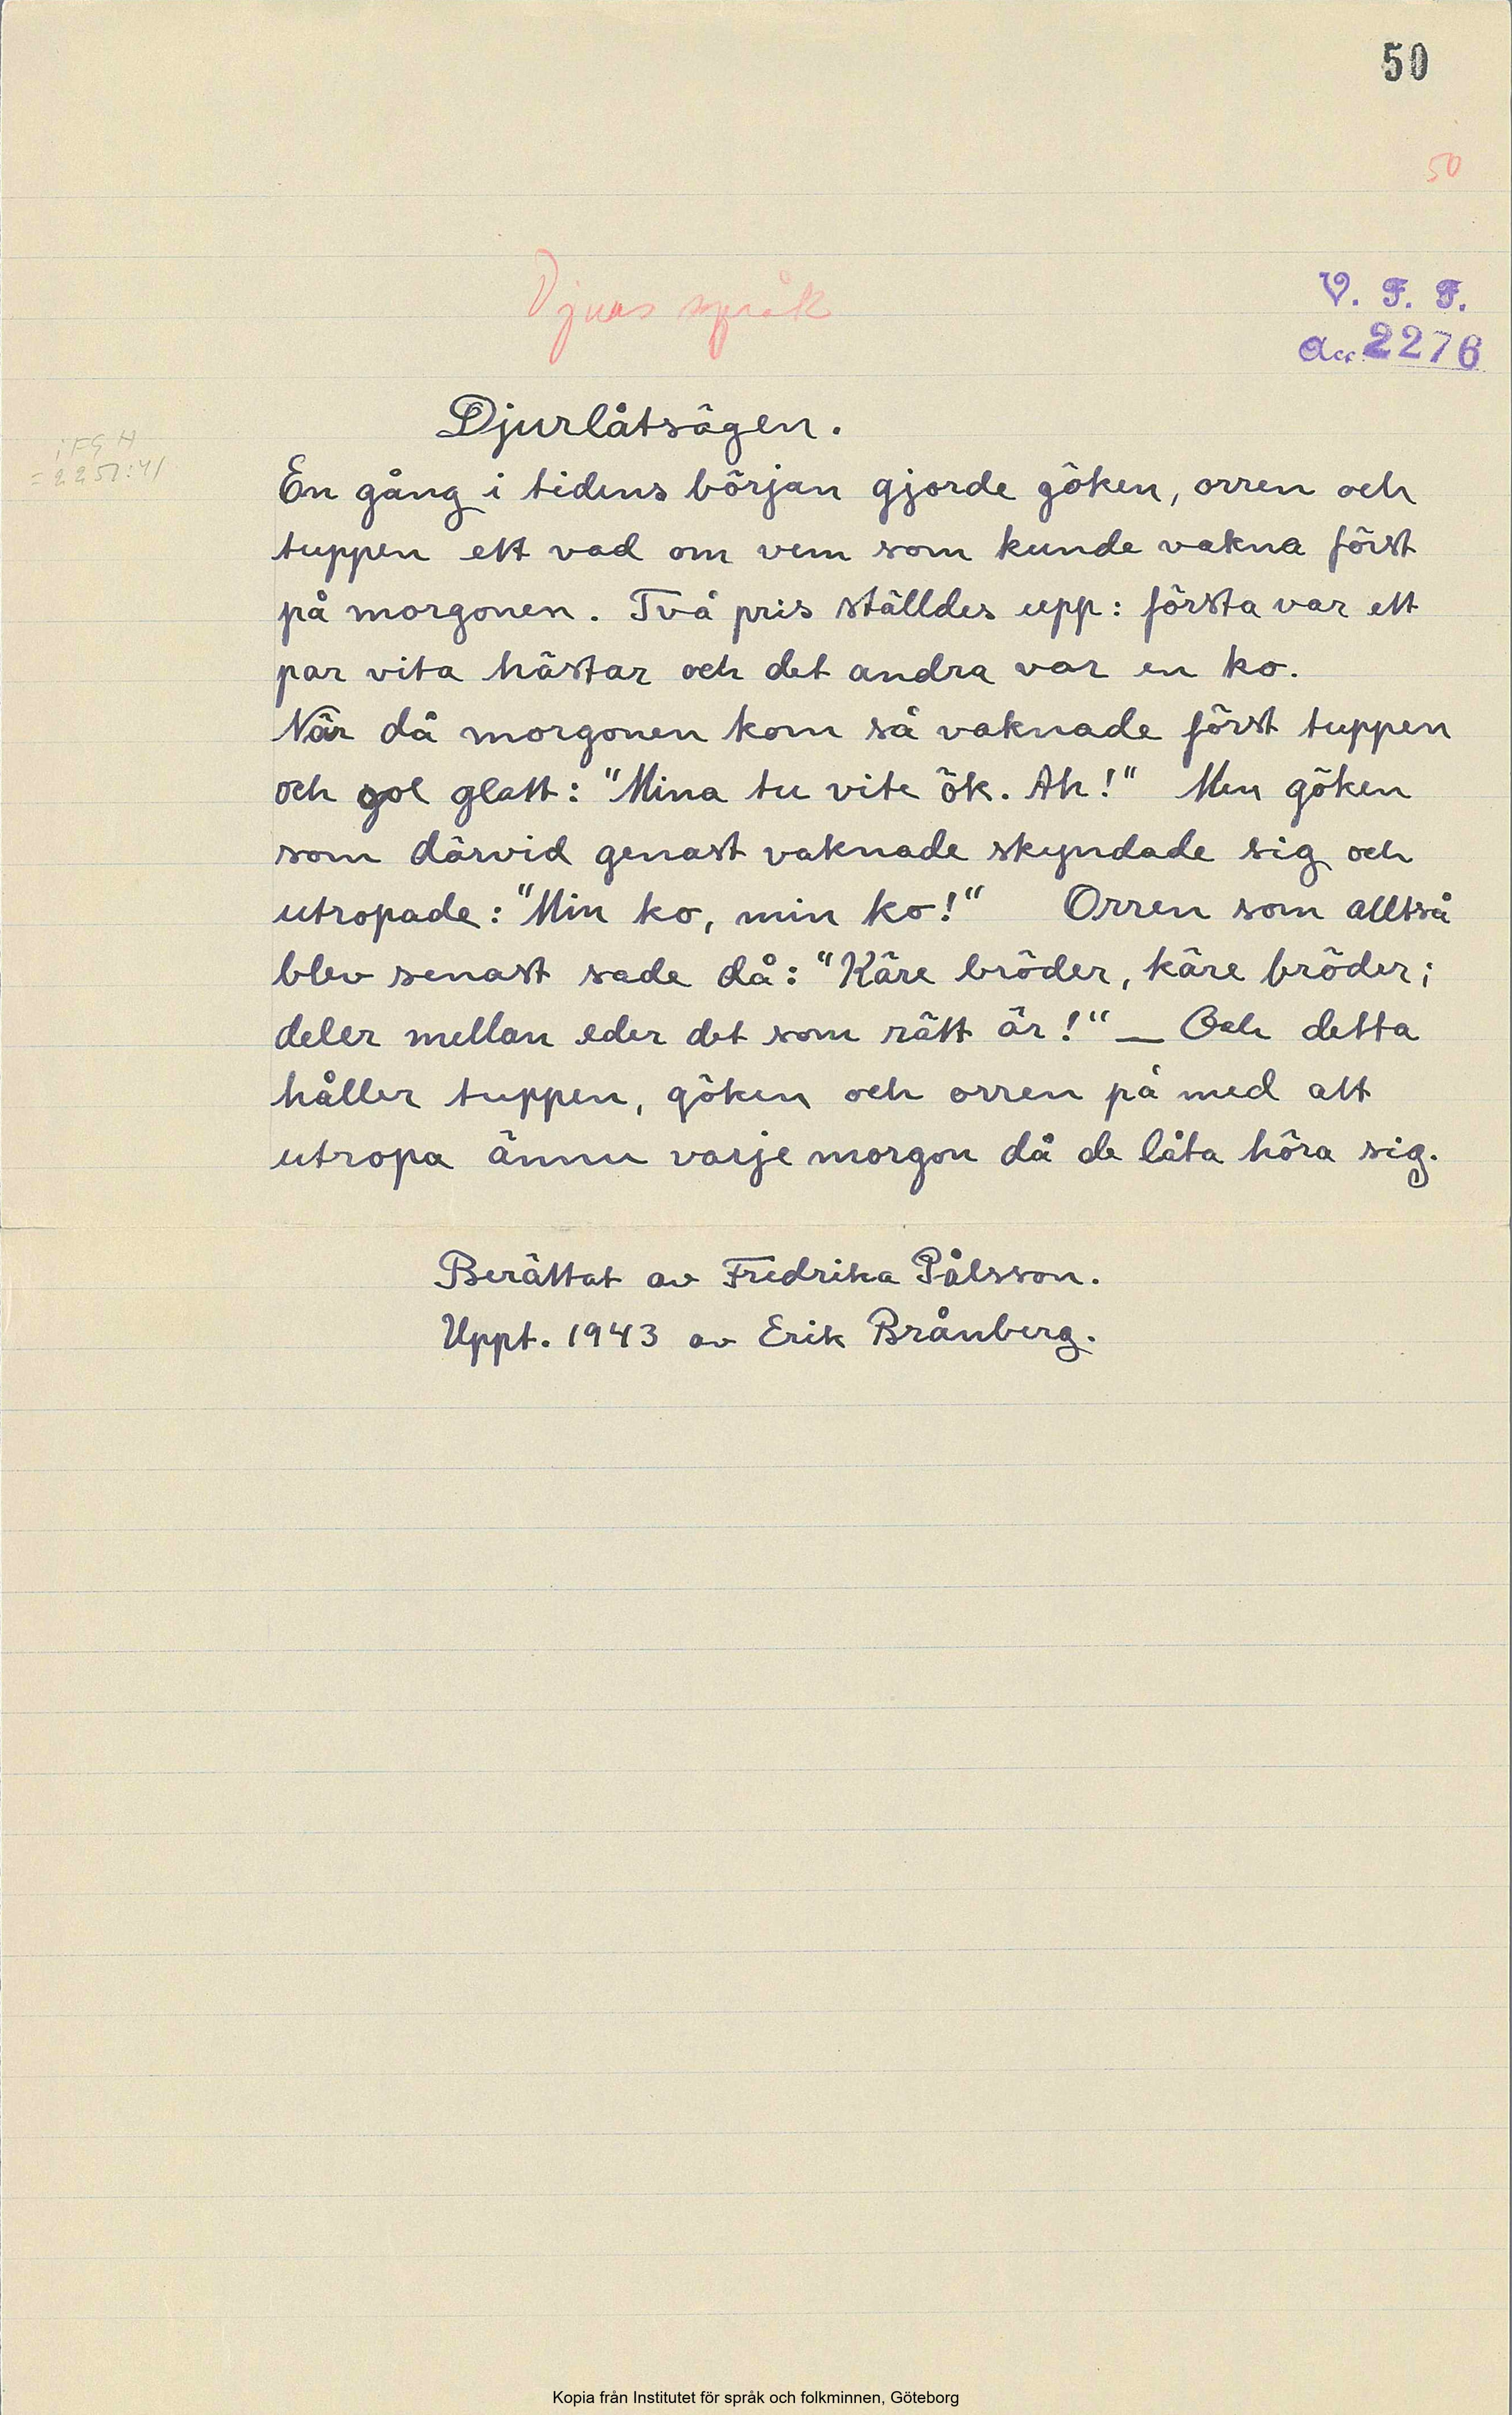 50
50
Djuras språk
V. F. F.
Acc. 2276
Djurlåtsägen.
IFGH
= 2257:41
En gång i tidens början gjorde göken, orren och
tuppen ett vad om vem som kunde vakna först
på morgonen. Två pris ställdes upp: första var ett
par vita hästar och det andra var en ko.
När då morgonen kom så vaknade först tuppen
och gol glatt: "Mina tu vite ök. Ah!" Men göken
som därvid genast vaknade skyndade sig och
utropade: "Min ko, min ko!" Orren som alltså
blev senast sade då: "Käre bröder, käre bröder;
deler mellan eder det som rätt är!" — Och detta
håller tuppen, göken och orren på med att
utropa ännu varje morgon då de låta höra sig.
Berättat av Fredrika Pålsson.
Uppt. 1943 av Erik Brånberg.
Kopia från Institutet för språk och folkminnen, Göteborg